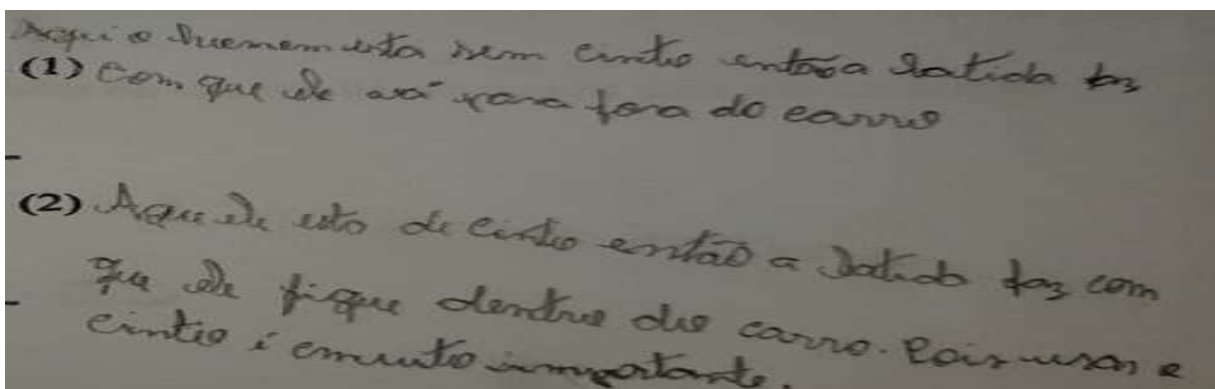 Aqui o huemem esta sem cinto então a batida faz
(1) com que ele vá para fora do carro
(2) Aqu ele esta de cinto então a batida faz com
que ele fique dentro do carro. Pois usar e
cinto é emuito importante.